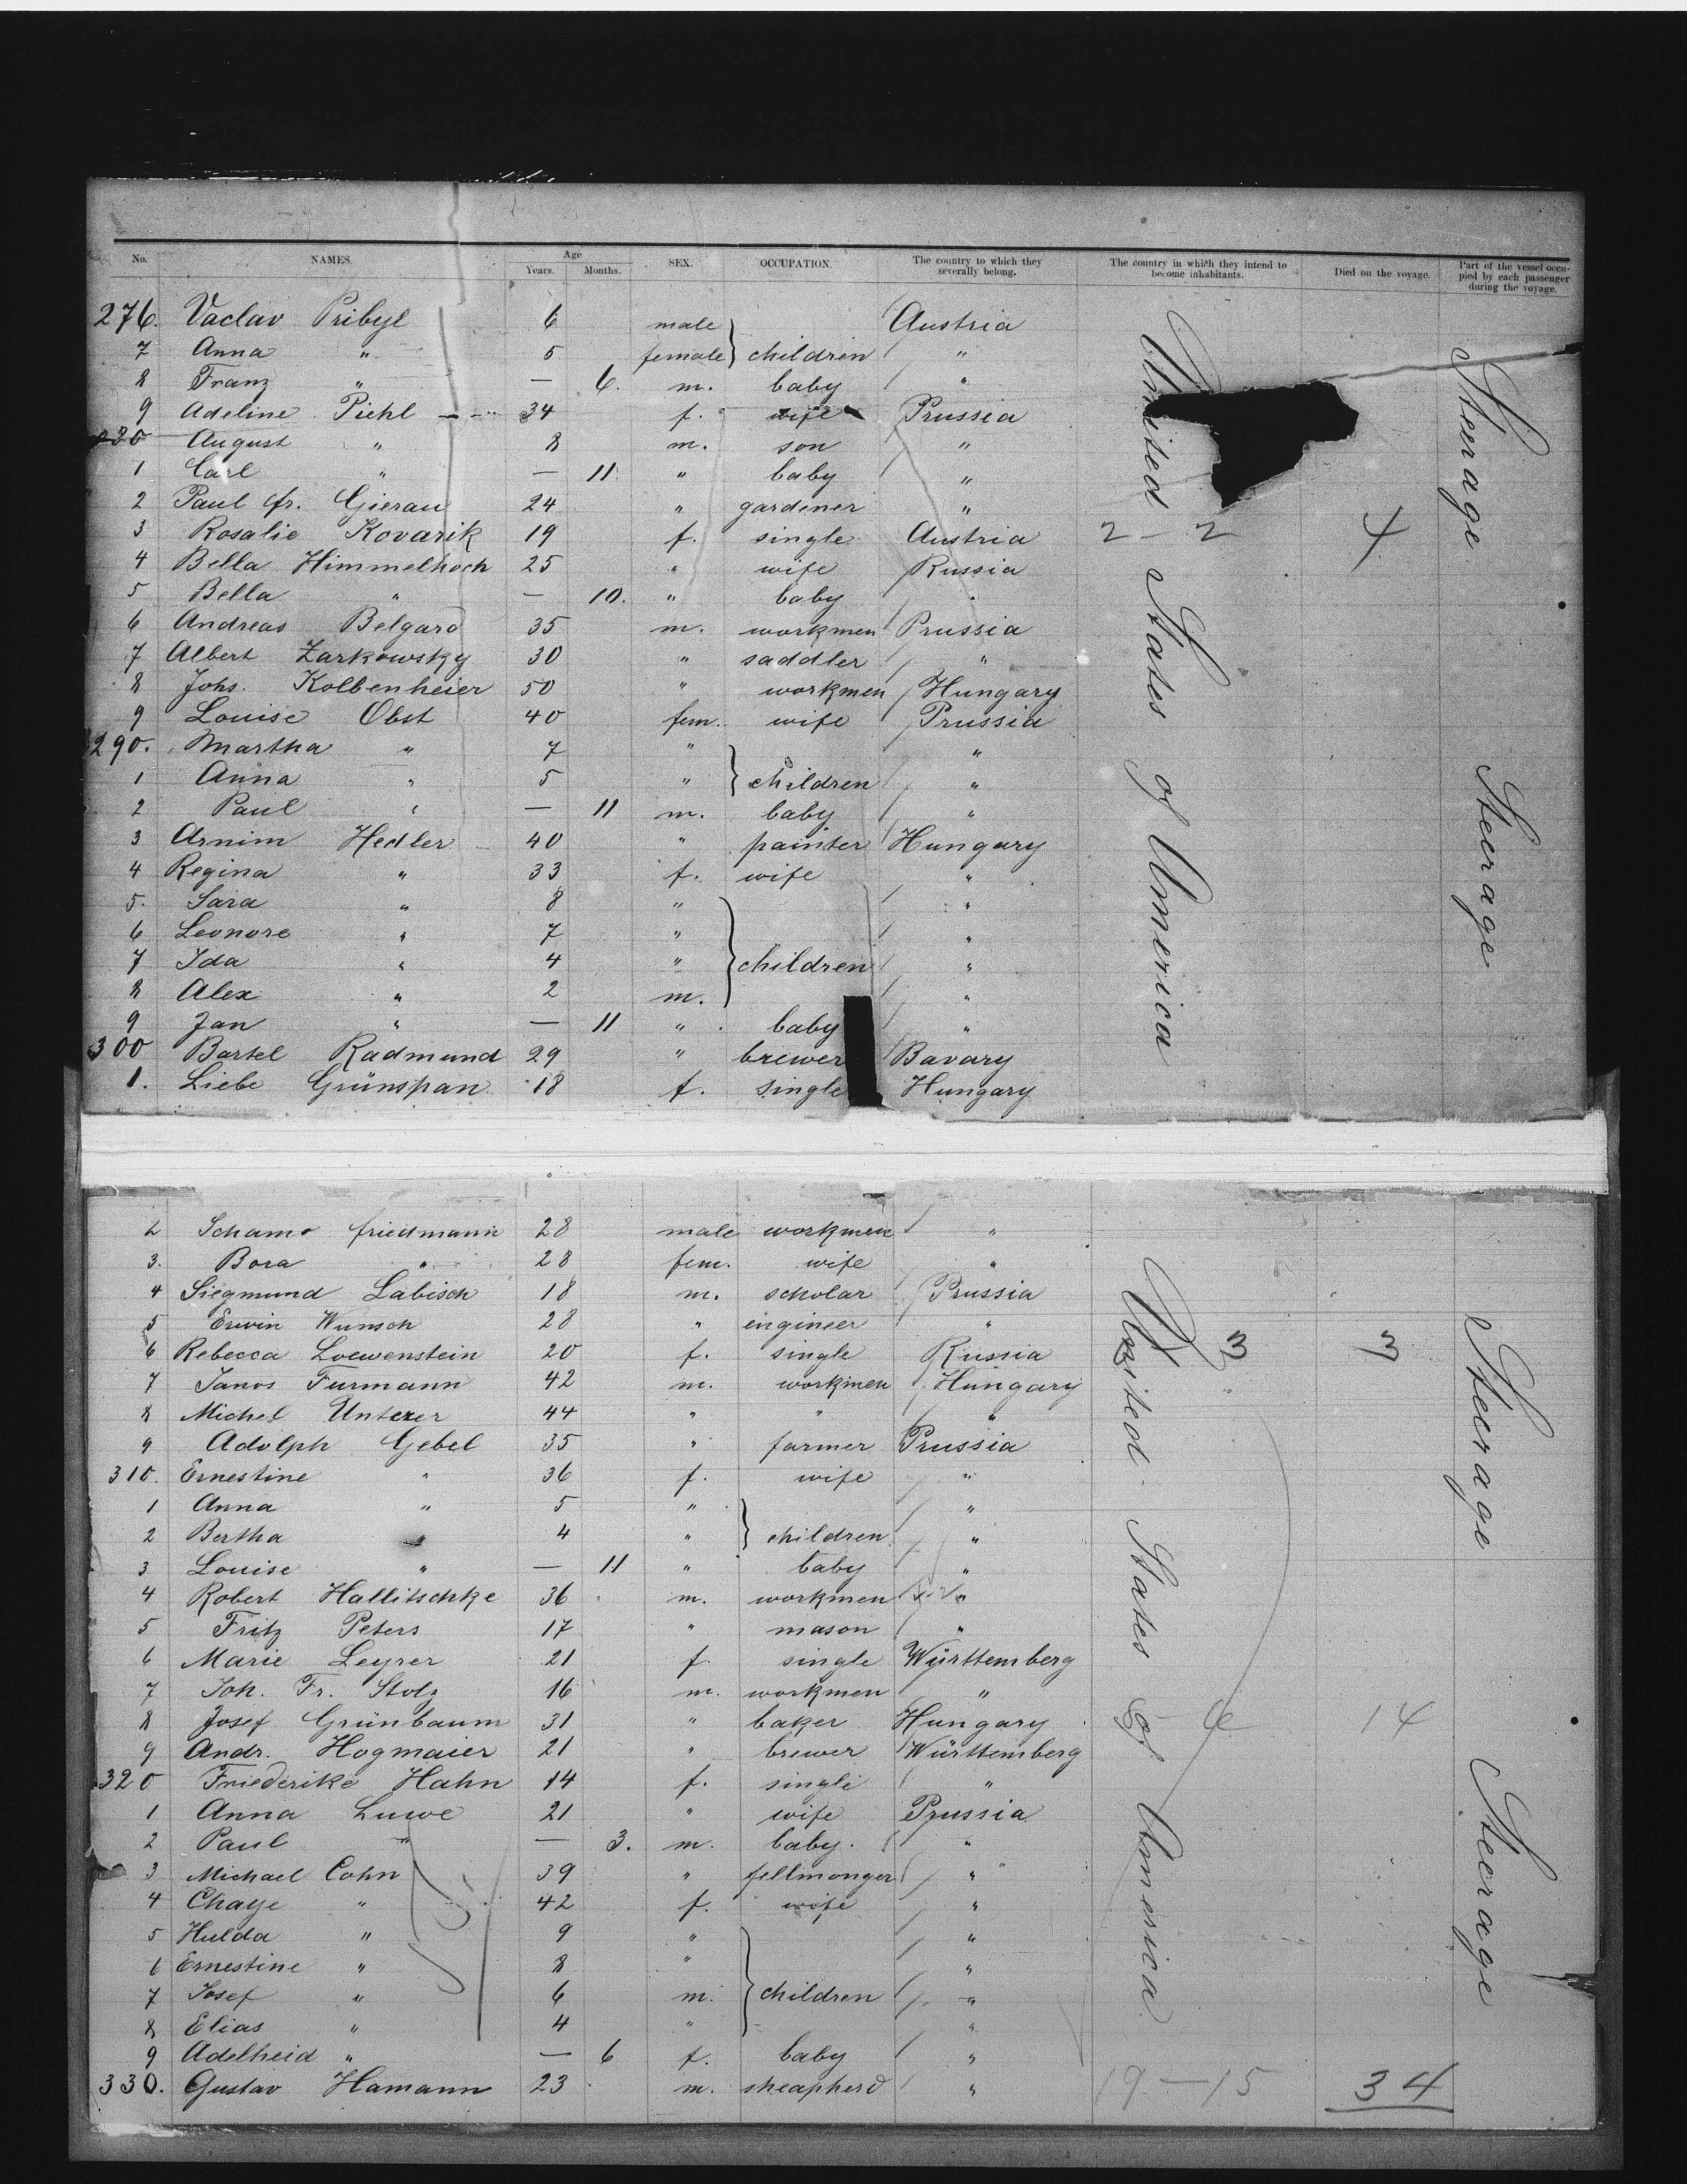 No. NAMES. Age Years. Months. SEX. OCCUPATION. The country to which they severally belong. The country in which they intend to become inhabitants. Died on the voyage. Part of the vessel occupied by each passenger during the voyage.
276. Vaclav Pribyl 6 male Austria
7 Anna " 5 female } children "
8 Franz " — 6. m. baby "
9 Adeline Piehl 34 f. wife Prussia
280 August " 8 m. son "
1 Carl " — 11 " baby "
2 Paul fr. Gierau 24 " gardener "
3 Rosalie Kovarik 19 f. single Austria 2 - 2 4
4 Bella Himmelhoch 25 " wife Russia
5 Bella " — 10. " baby "
6 Andreas Belgard 35 m. workmen Prussia
7 Albert Zarkowsky 30 " saddler "
8 Johs. Kolbenheier 50 " workmen Hungary
9 Louise Obst 40 fem. wife Prussia
290. Martha " 7 " "
1 Anna " 5 " } children "
2 Paul " — 11 m. baby "
3 Arnim Hedler 40 " painter Hungary
4 Regina " 33 f. wife "
5. Sara " 8 " "
6 Leonore " 7 " "
7 Ida " 4 " } children "
8 Alex " 2 m. "
9 Jan " — 11 " baby "
300 Bartel Radmund 29 " brewer Bavary
1. Liebe Grünspan 18 f. single Hungary
United States of America
Steerage Steerage
2 Schamo friedmann 28 male workmen "
3. Bora " 28 fem. wife "
4 Siegmund Labisch 18 m. scholar Prussia
5 Erwin Wunsch 28 " engineer "
6 Rebecca Loewenstein 20 f. single Russia 3 3
7 Janos Furmann 42 m. workmen Hungary
8 Michel Unterer 44 " " "
9 Adolph Gebel 35 " farmer Prussia
310. Ernestine " 36 f. wife "
1 Anna " 5 " "
2 Bertha " 4 " } children "
3 Louise " — 11 " baby "
4 Robert Hallitschke 36 m. workmen "
5 Fritz Peters 17 " mason "
6 Marie Leyrer 21 f. single Württemberg
7 Joh. Fr. Stolz 16 m. workmen "
8 Josef Grünbaum 31 " baker Hungary 14
9 Andr. Hogmaier 21 " brewer Württemberg
320 Friederike Hahn 14 f. single "
1 Anna Luwe 21 " wife Prussia
2 Paul " — 3. m. baby. "
3 Michael Cohn 39 " fellmonger "
4 Chaye " 42 f. wife "
5 Hulda " 9 " "
6 Ernestine " 8 " "
7 Josef " 6 m. } children "
8 Elias " 4 " "
9 Adelheid " — 6 f. baby "
330. Gustav Hamann 23 m. sheapherd " 19 — 15 34
United States of America
Steerage Steerage